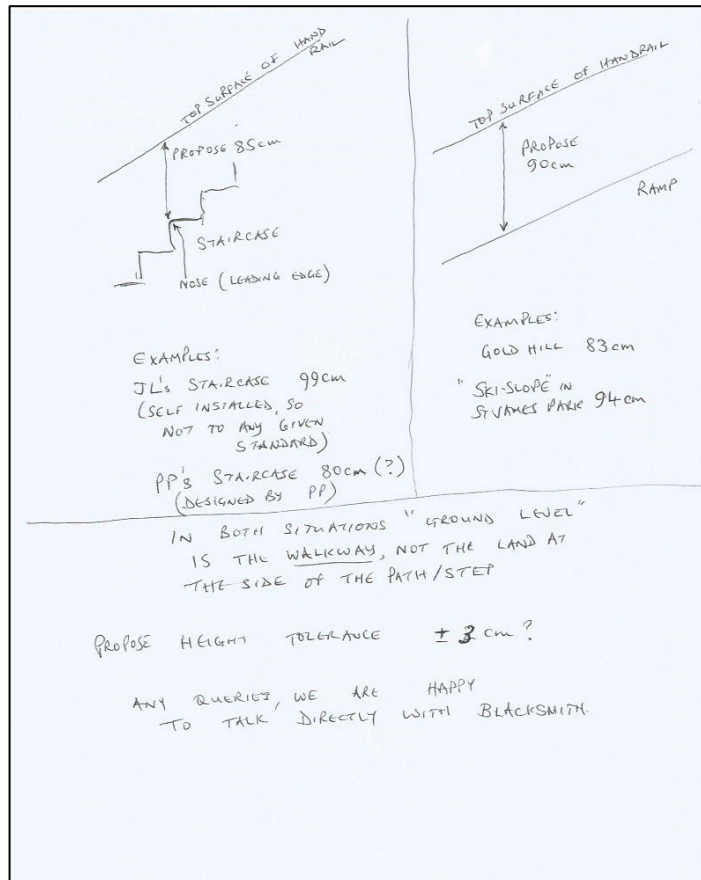 TOP SURFACE OF HAND
RAIL
PROPOSE 85cm
STAIRCASE
NOSE (LEADING EDGE)
EXAMPLES:
JL's STAIRCASE 99cm
(SELF INSTALLED, SO
NOT TO ANY GIVEN
STANDARD)
PP's STAIRCASE 80cm (?)
(DESIGNED BY PP)
TOP SURFACE OF HANDRAIL
PROPOSE
90cm
RAMP
EXAMPLES:
GOLD HILL 83cm
"SKI-SLOPE" IN
ST JAMES PARK 94cm
IN BOTH SITUATIONS "GROUND LEVEL"
IS THE WALKWAY, NOT THE LAND AT
THE SIDE OF THE PATH/STEP
PROPOSE HEIGHT TOLERANCE ± 3 cm?
ANY QUERIES, WE ARE HAPPY
TO TALK DIRECTLY WITH BLACKSMITH.